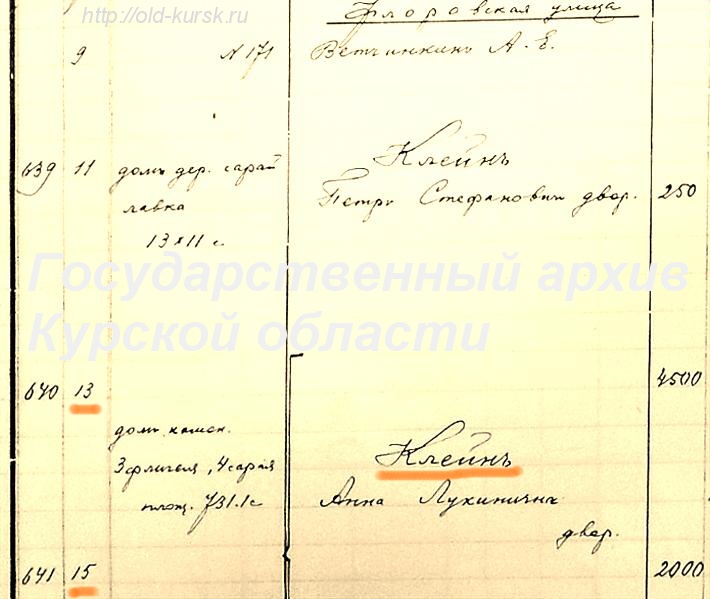 http://old-kursk.ru
Флоровская улица
9 N 171 Ветчинкинъ А. Е.
Клейнъ
639 11 домъ дер. сарай Петръ Стефановичъ двор. 250
лавка
13 x 11 с.
Государственный архив
Курской области
640 13 4500
домъ камен.
Клейнъ
3 флигеля, 4 сарая
площ. 731.1 с Анна Лукинична
двор.
641 15 2000